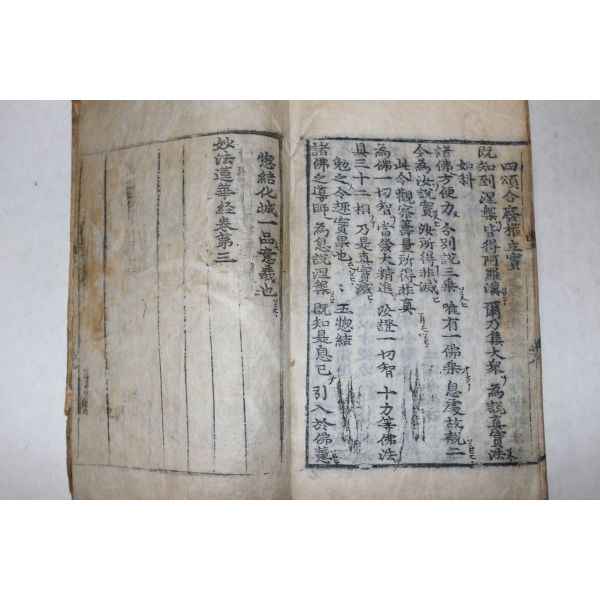 四頌合廢權立實
既知到涅槃 皆得阿羅漢 爾乃集大衆 為說真實法
如科
諸佛方便力 分別說三乗 唯有一佛乗 息處故說二
今為汝說實 汝所得非滅
此令觀察籌量所得非真
為佛一切智 當發大精進 汝證一切智 十力等佛法
具三十二相 乃是真實滅
勉之令趣實果也 五惣結
諸佛之導師 為息說涅槃 既知是息已 引入於佛慧
惣結化城一品意義也
妙法蓮華經卷第三